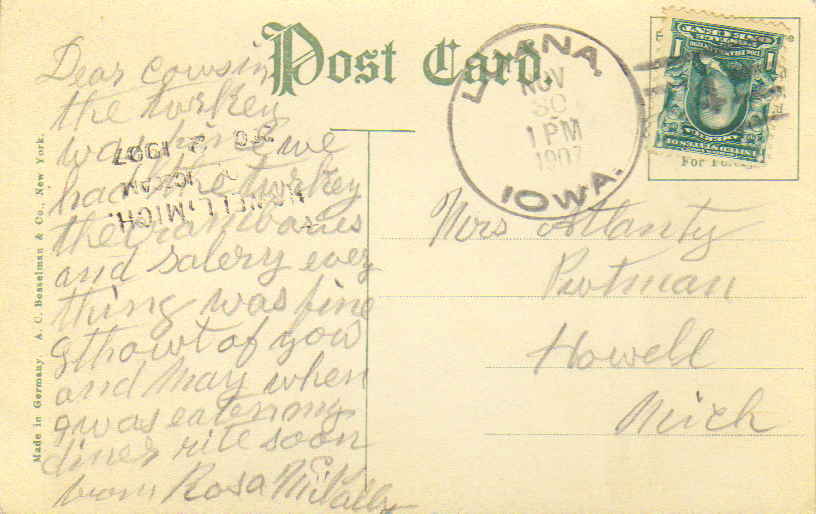 Post Card.
NOV
30
1 PM
1907
IOWA.
Dear cowsin
the turkey
was fine we
had the turkey
the cranbaries
and salery every
thing was fine
I thowt of you
and May when
I was eaten my
diner rite soon
from Rosa
2 1907
MICH.
Mrs Atlanty
Putman
Howell
Mich
Made in Germany. A. C. Bosselman & Co., New York.
ONE CENT
UNITED STATES OF
AMERICA
For